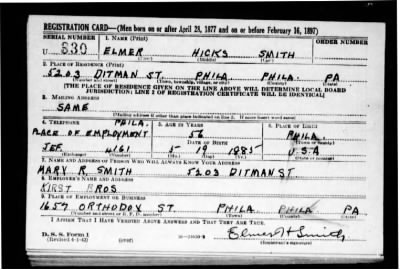 REGISTRATION CARD—(Men born on or after April 28, 1877 and on or before February 16, 1897)
SERIAL NUMBER 1. NAME (Print) ORDER NUMBER
U 830 ELMER HICKS SMITH
(First) (Middle) (Last)
2. PLACE OF RESIDENCE (Print)
5203 DITMAN ST. PHILA. PHILA. PA
(Number and street) (Town, township, village, or city) (County) (State)
[THE PLACE OF RESIDENCE GIVEN ON THE LINE ABOVE WILL DETERMINE LOCAL BOARD
JURISDICTION; LINE 2 OF REGISTRATION CERTIFICATE WILL BE IDENTICAL]
3. MAILING ADDRESS
SAME
[Mailing address if other than place indicated on line 2. If same insert word same]
4. TELEPHONE PHILA. 5. AGE IN YEARS 6. PLACE OF BIRTH
PLACE OF EMPLOYMENT 56 PHILA.
DATE OF BIRTH (Town or county)
JEF. 4161 5 19 1885 U.S.A
(Exchange) (Number) (Mo.) (Day) (Yr.) (State or country)
7. NAME AND ADDRESS OF PERSON WHO WILL ALWAYS KNOW YOUR ADDRESS
MARY R. SMITH 5203 DITMAN ST.
8. EMPLOYER'S NAME AND ADDRESS
KIRST BROS
9. PLACE OF EMPLOYMENT OR BUSINESS
1657 ORTHODOX ST. PHILA PHILA PA
(Number and street or R. F. D. number) (Town) (County) (State)
I AFFIRM THAT I HAVE VERIFIED ABOVE ANSWERS AND THAT THEY ARE TRUE.
D. S. S. Form 1
(Revised 4-1-42) (over) Elmer H Smith
(Registrant's signature)